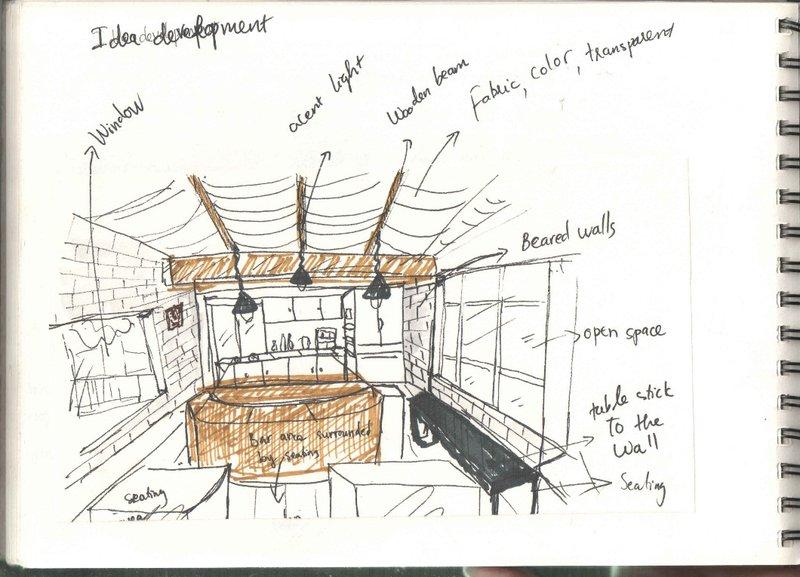 Idea development
Window
acent light
Wooden beam
Fabric, color, transparent
Beared walls
open space
table stick
to the
wall
Seating
Bar area surrounded
by seating
seating